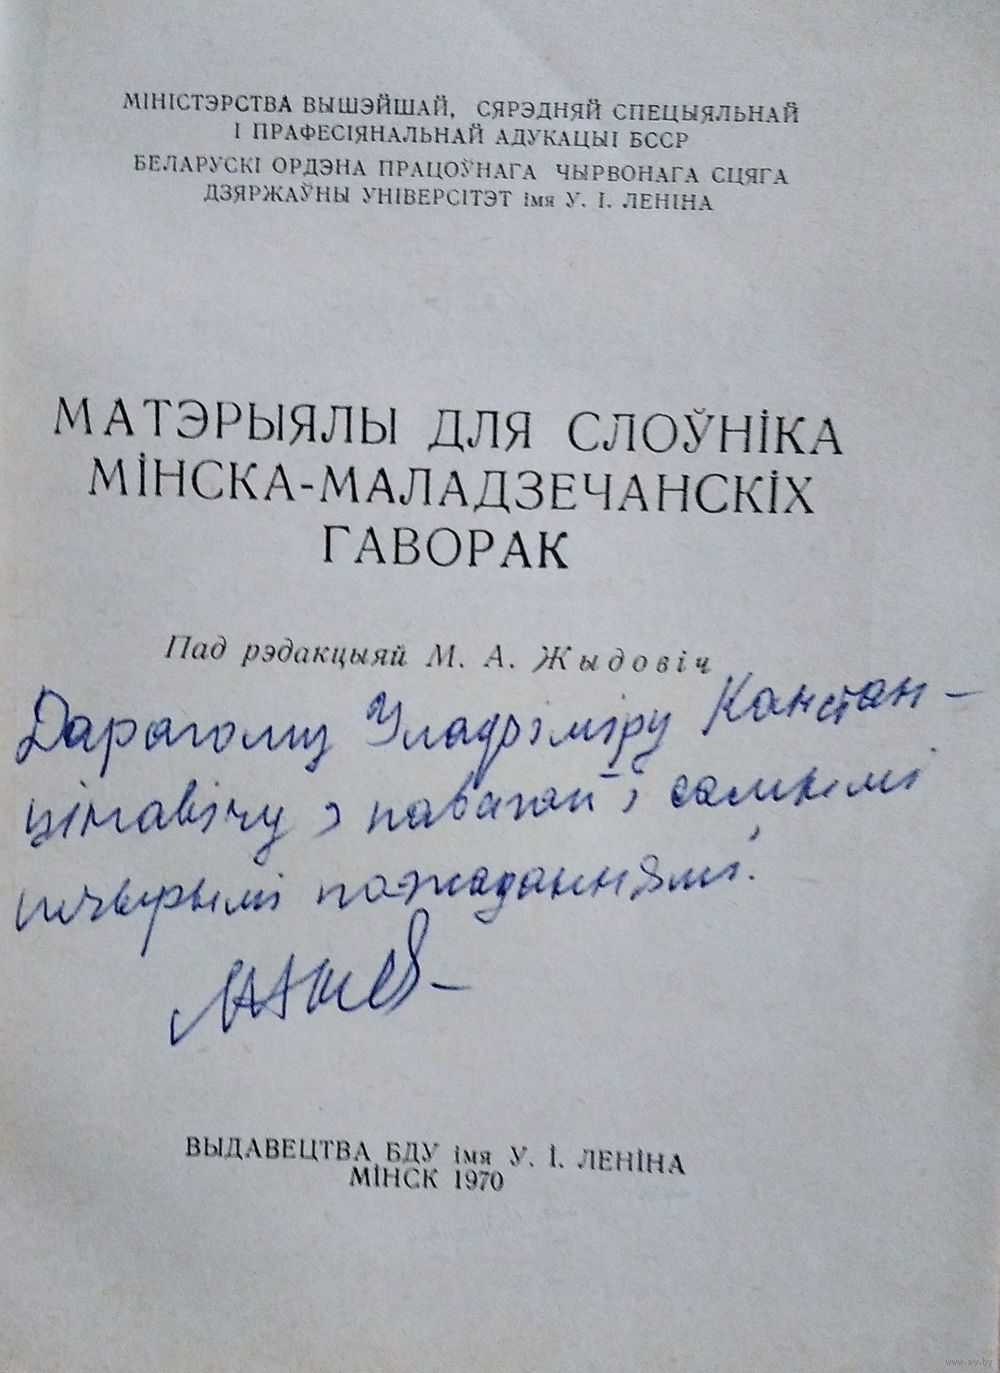 МІНІСТЭРСТВА ВЫШЭЙШАЙ, СЯРЭДНЯЙ СПЕЦЫЯЛЬНАЙ
І ПРАФЕСІЯНАЛЬНАЙ АДУКАЦЫІ БССР
БЕЛАРУСКІ ОРДЭНА ПРАЦОЎНАГА ЧЫРВОНАГА СЦЯГА
ДЗЯРЖАЎНЫ УНІВЕРСІТЭТ імя У. І. ЛЕНІНА
МАТЭРЫЯЛЫ ДЛЯ СЛОЎНІКА
МІНСКА-МАЛАДЗЕЧАНСКІХ
ГАВОРАК
Пад рэдакцыяй М. А. Жыдовіч
Дарагому Уладзіміру Канстан-
цінавічу з павагай і самымі
шчырымі пажаданнямі.
ВЫДАВЕЦТВА БДУ імя У. І. ЛЕНІНА
МІНСК 1970
www.ay.by